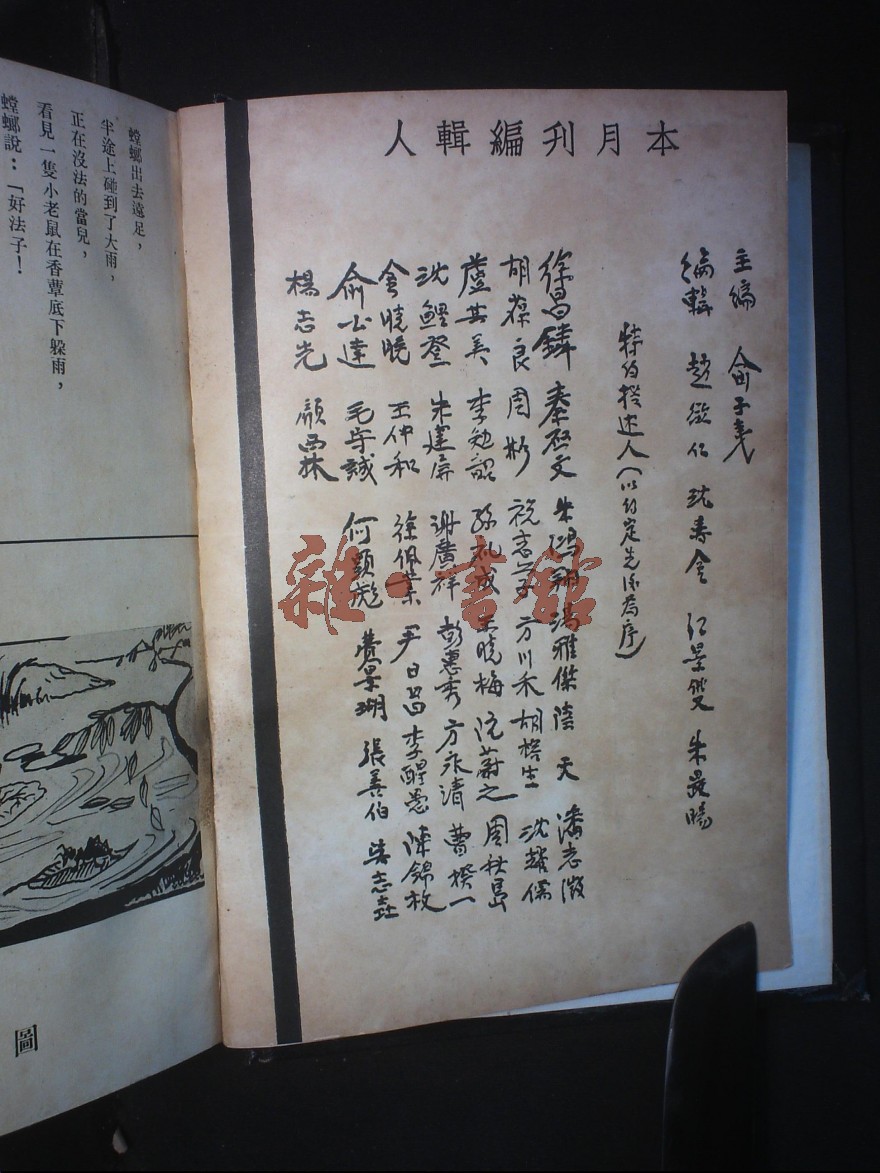 本月刊編輯人
主編 俞子夷
編輯 趙欲仁 沈壽金 朱晸暘
特約撰述人（以約定先後為序）
徐昌鏻 秦啓文 朱鴻翔 馮雅傑 陸天 潘志澂
胡葆良 周彬 祝志學 方川禾 胡棓生 沈耀儒
盧其美 李勉韶 孫禮成 王曉梅 阮蔚之 周杜島
沈鯉登 朱蓬屏 謝廣祥 彭惠秀 方永清 曹揆一
金曉曉 王仲和 徐佩業 尹日昌 李醒愚 陳錦枚
俞公達 毛守誠 何顯彪 費景瑚 張善伯 吳志
楊志先 顏西林
雜·書館
螳螂出去遠足，
半途上碰到了大雨，
正在沒法的當兒，
看見一隻小老鼠在香蕈底下躲雨，
螳螂說：「好法子！
圖